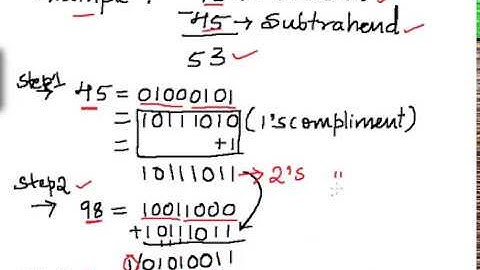 45 → Subtrahend ✓
53 ✓
Step1
→ 45 = 01000101
= 10111010 (1's compliment)
= +1
10111011 → 2's "
Step2 ✓
→ 98 = 10011000
+10111011
1) 01010011